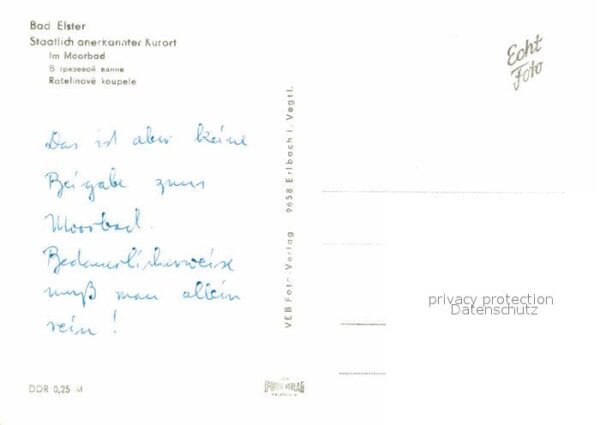 Bad Elster
Staatlich anerkannter Kurort
Im Moorbad
В грязевой ванне
Rašelinové koupele
Echt
Foto
Das ist aber keine
Beigabe zum
Moorbad.
Bedauerlicherweise
muß man allein
rein!
VEB Foto-Verlag 9658 Erlbach i. Vogtl.
privacy protection
Datenschutz
FOTO VERLAG
DDR 0,25 M